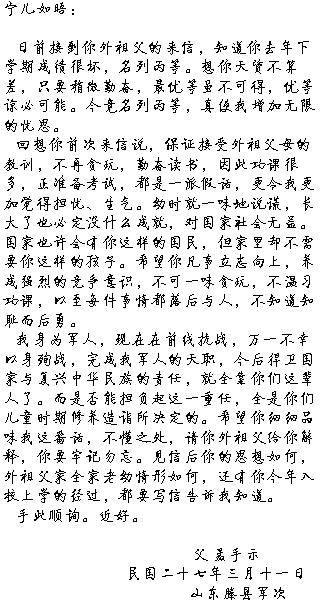 宁儿如晤：
日前接到你外祖父的来信，知道你去年下
学期成绩很坏，名列丙等。想你天质不算
差，只要稍微勤奋，最优等虽不可得，优等
谅必可能。今竟名列丙等，真使我增加无限
的忧思。
回想你首次来信说，保证接受外祖父母的
教训，不再贪玩，勤奋读书，因此功课很
多，正准备考试，都是一派假话，更令我更
加觉得担忧、生气。幼时就一味地说谎，长
大了也必定没什么成就，对国家社会无益。
国家也许会有你这样的国民，但家里却不需
要你这样的孩子。希望你凡事立志向上，养
成强烈的竞争意识，不可一味贪玩，不温习
功课，以至每件事情都落后与人，不知道知
耻而后勇。
我身为军人，现在在前线抗战，万一不幸
以身殉战，完成我军人的天职，今后捍卫国
家与复兴中华民族的责任，就全靠你们这辈
人了。而是否能担负起这一重任，全是你们
儿童时期修养造诣所决定的。希望你细细品
味我这番话，不懂之处，请你外祖父给你解
释，你要牢记勿忘。见信后你的思想如何，
外祖父家全家老幼情形如何，还有你今年入
校上学的经过，都要写信告诉我知道。
手此顺询。近好。
父孟手示
民国二十七年三月十一日
山东滕县军次